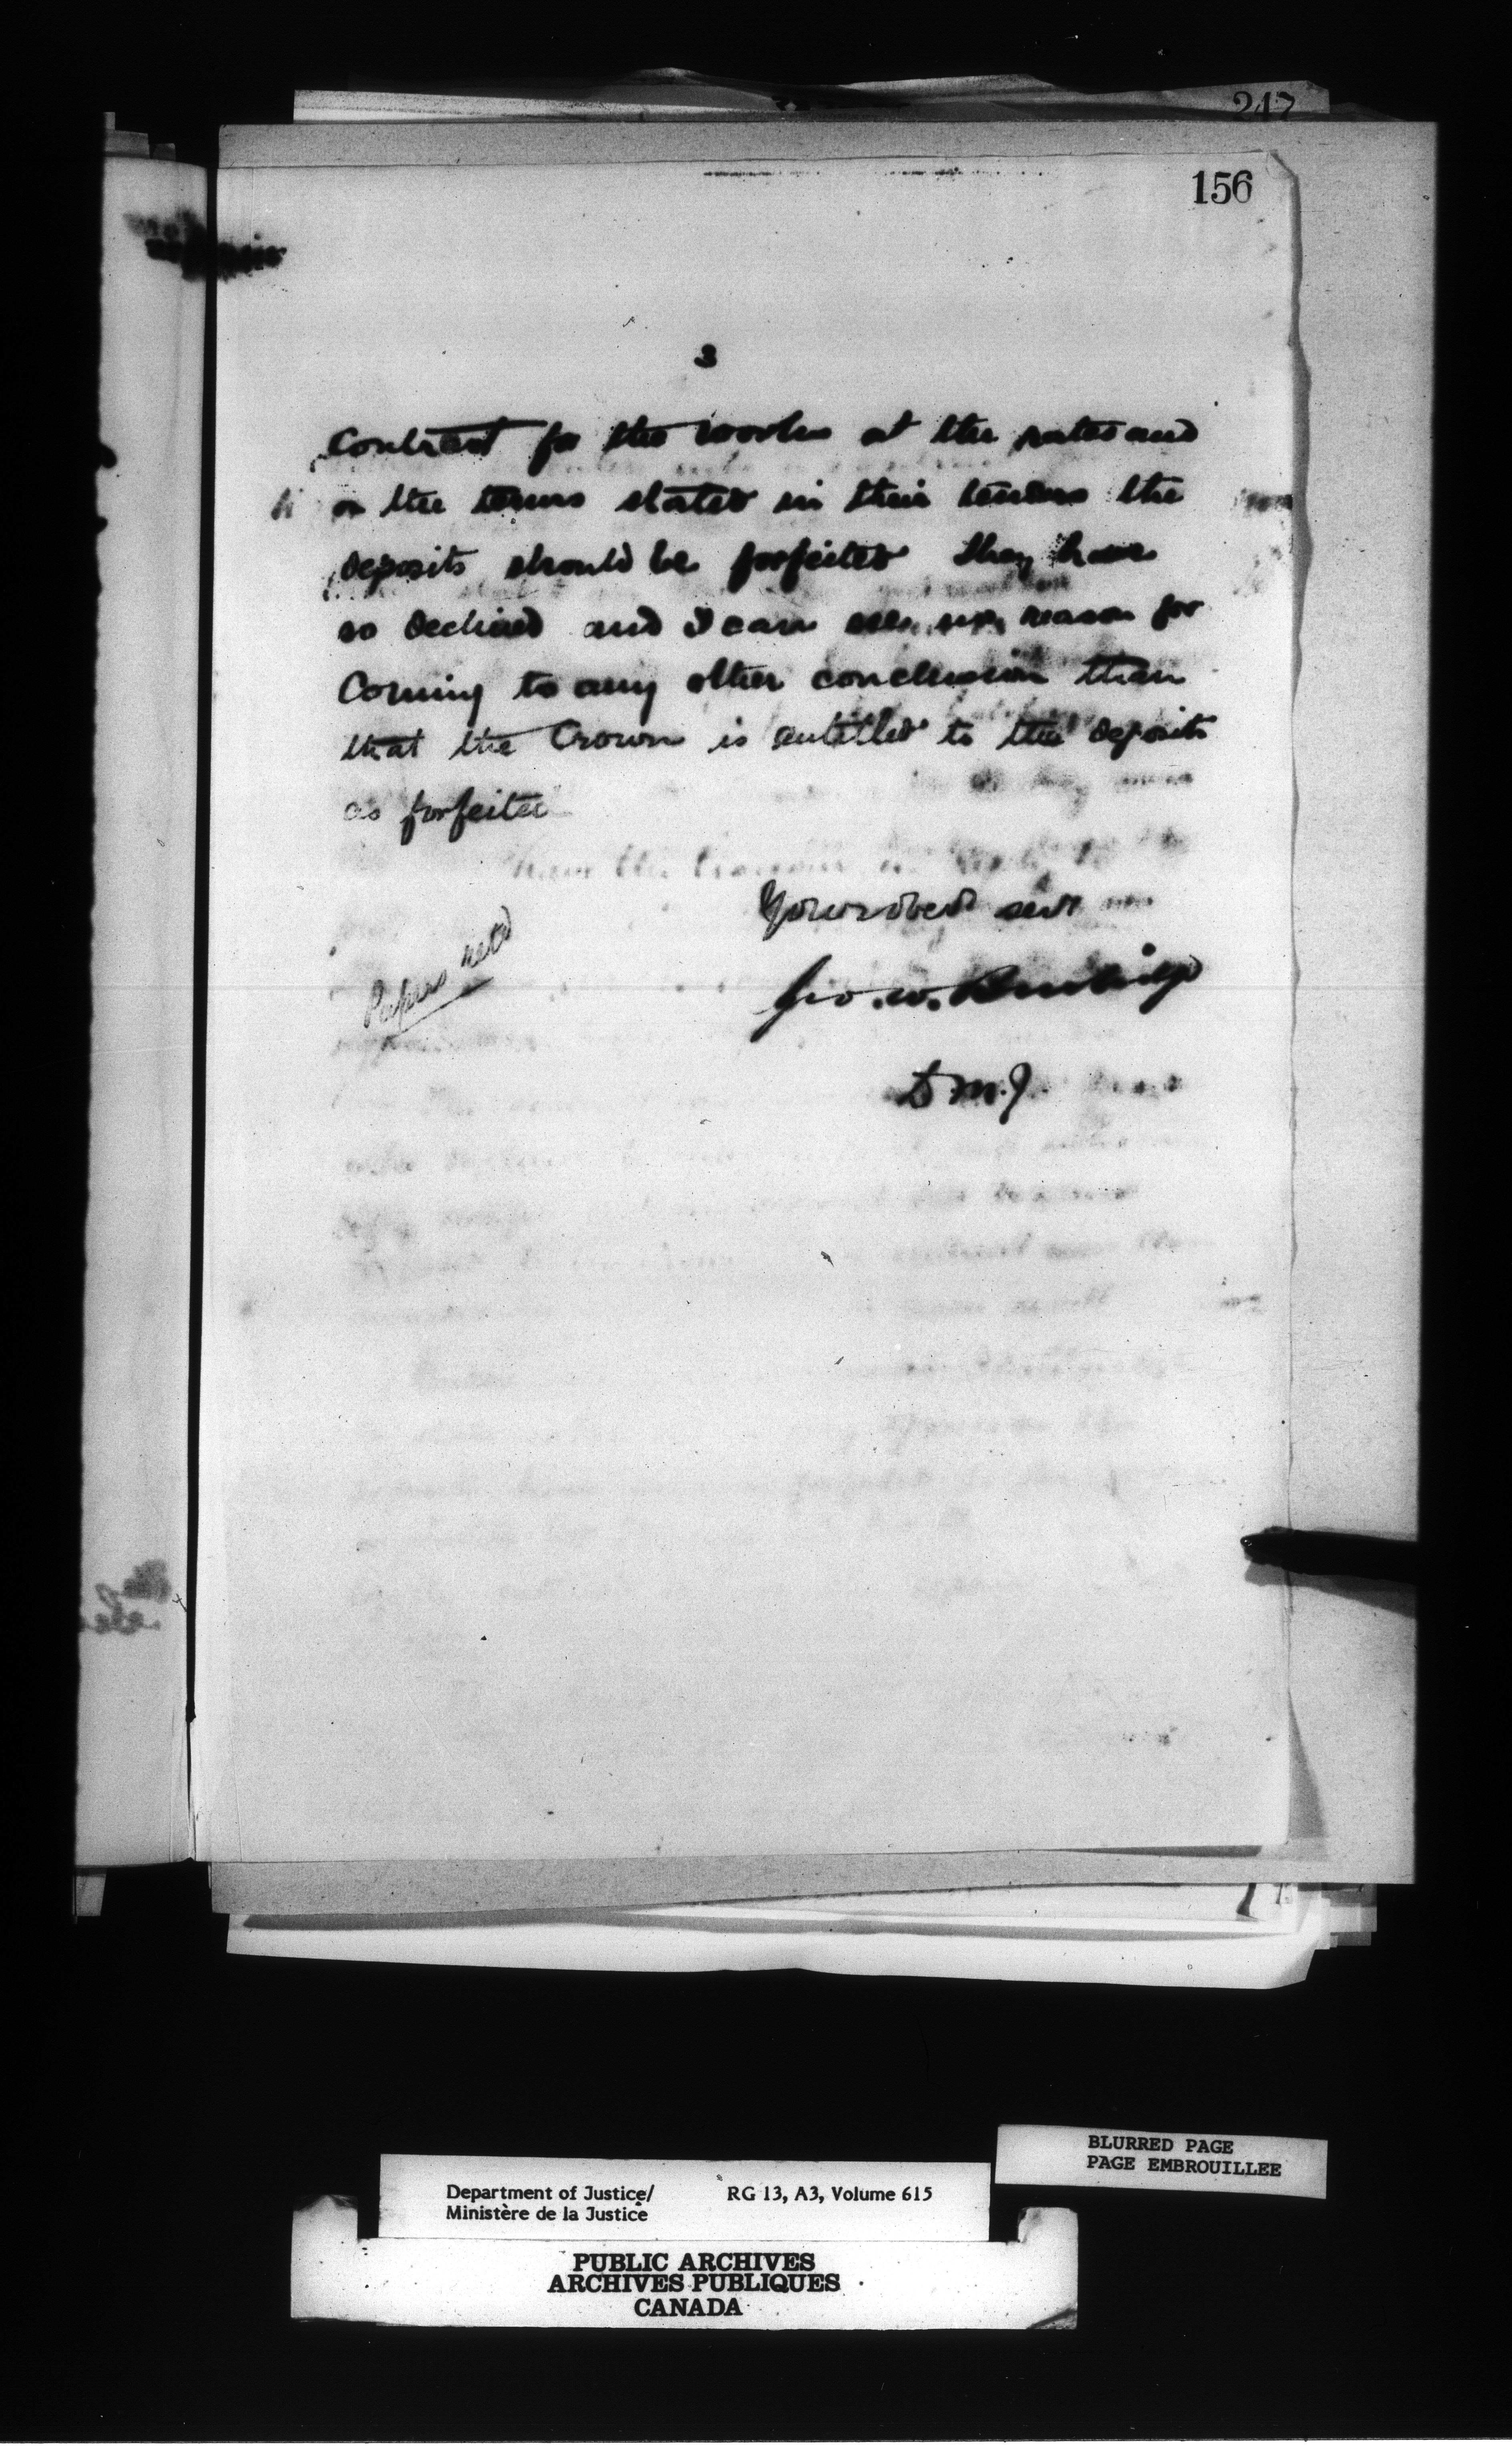 247
156
3
Contract for the works at the rates and
on the terms stated in their tenders the
deposits should be forfeited they have
so declined and I can see no reason for
Coming to any other conclusion than
that the Crown is entitled to the deposits
as forfeited
Your obed servt
Papers retd
Geo. W. Burbidge
D M. J.
BLURRED PAGE
PAGE EMBROUILLEE
Department of Justice/ RG 13, A3, Volume 615
Ministère de la Justice
PUBLIC ARCHIVES
ARCHIVES PUBLIQUES
CANADA